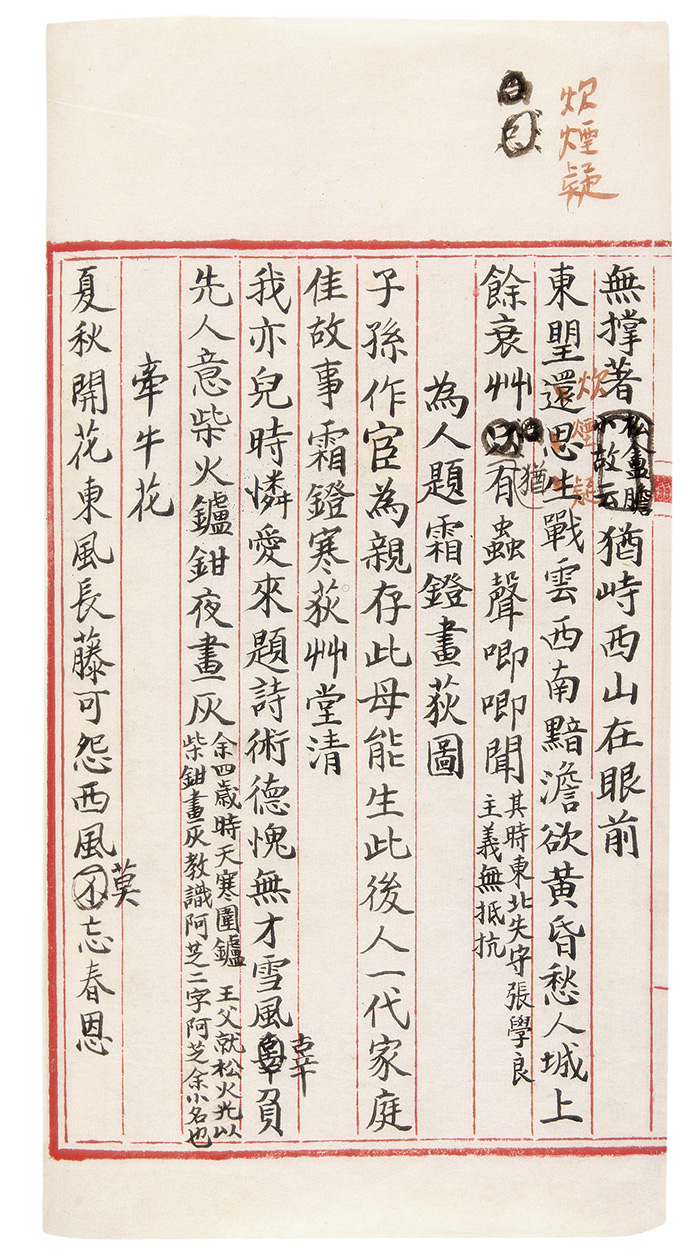 炊煙疑
無撐著故云猶峙西山在眼前
炊煙疑
東朢還思生戰雲西南黯澹欲黃昏愁人城上
猶
餘衰艸有蟲聲唧唧聞其時東北失守張學良
主義無抵抗
為人題霜鐙畫荻圖
子孫作官為親存此母能生此後人一代家庭
佳故事霜鐙寒荻艸堂清
辜
我亦兒時憐愛來題詩術德愧無才雪風負
先人意柴火鑪鉗夜畫灰余四歲時天寒圍鑪 王父就松火光以
柴鉗畫灰教識阿芝二字阿芝余小名也
牽牛花
莫
夏秋開花東風長藤可怨西風不忘春恩